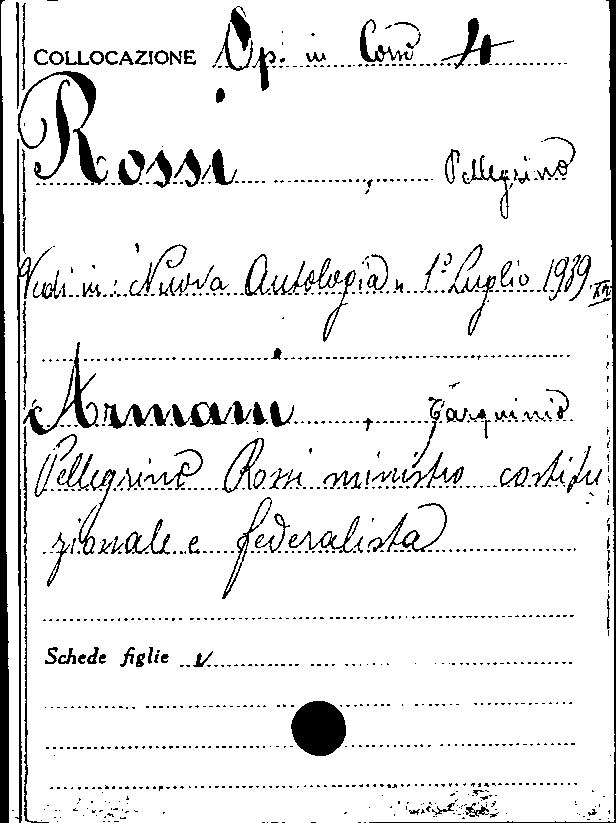 COLLOCAZIONE Op. in Cons 4
Rossi, Pellegrino
Vedi in: "Nuova Antologia" 1° Luglio 1939
Armani, Tarquinio
Pellegrino Rossi ministro costitu
zionale e federalista
Schede figlie